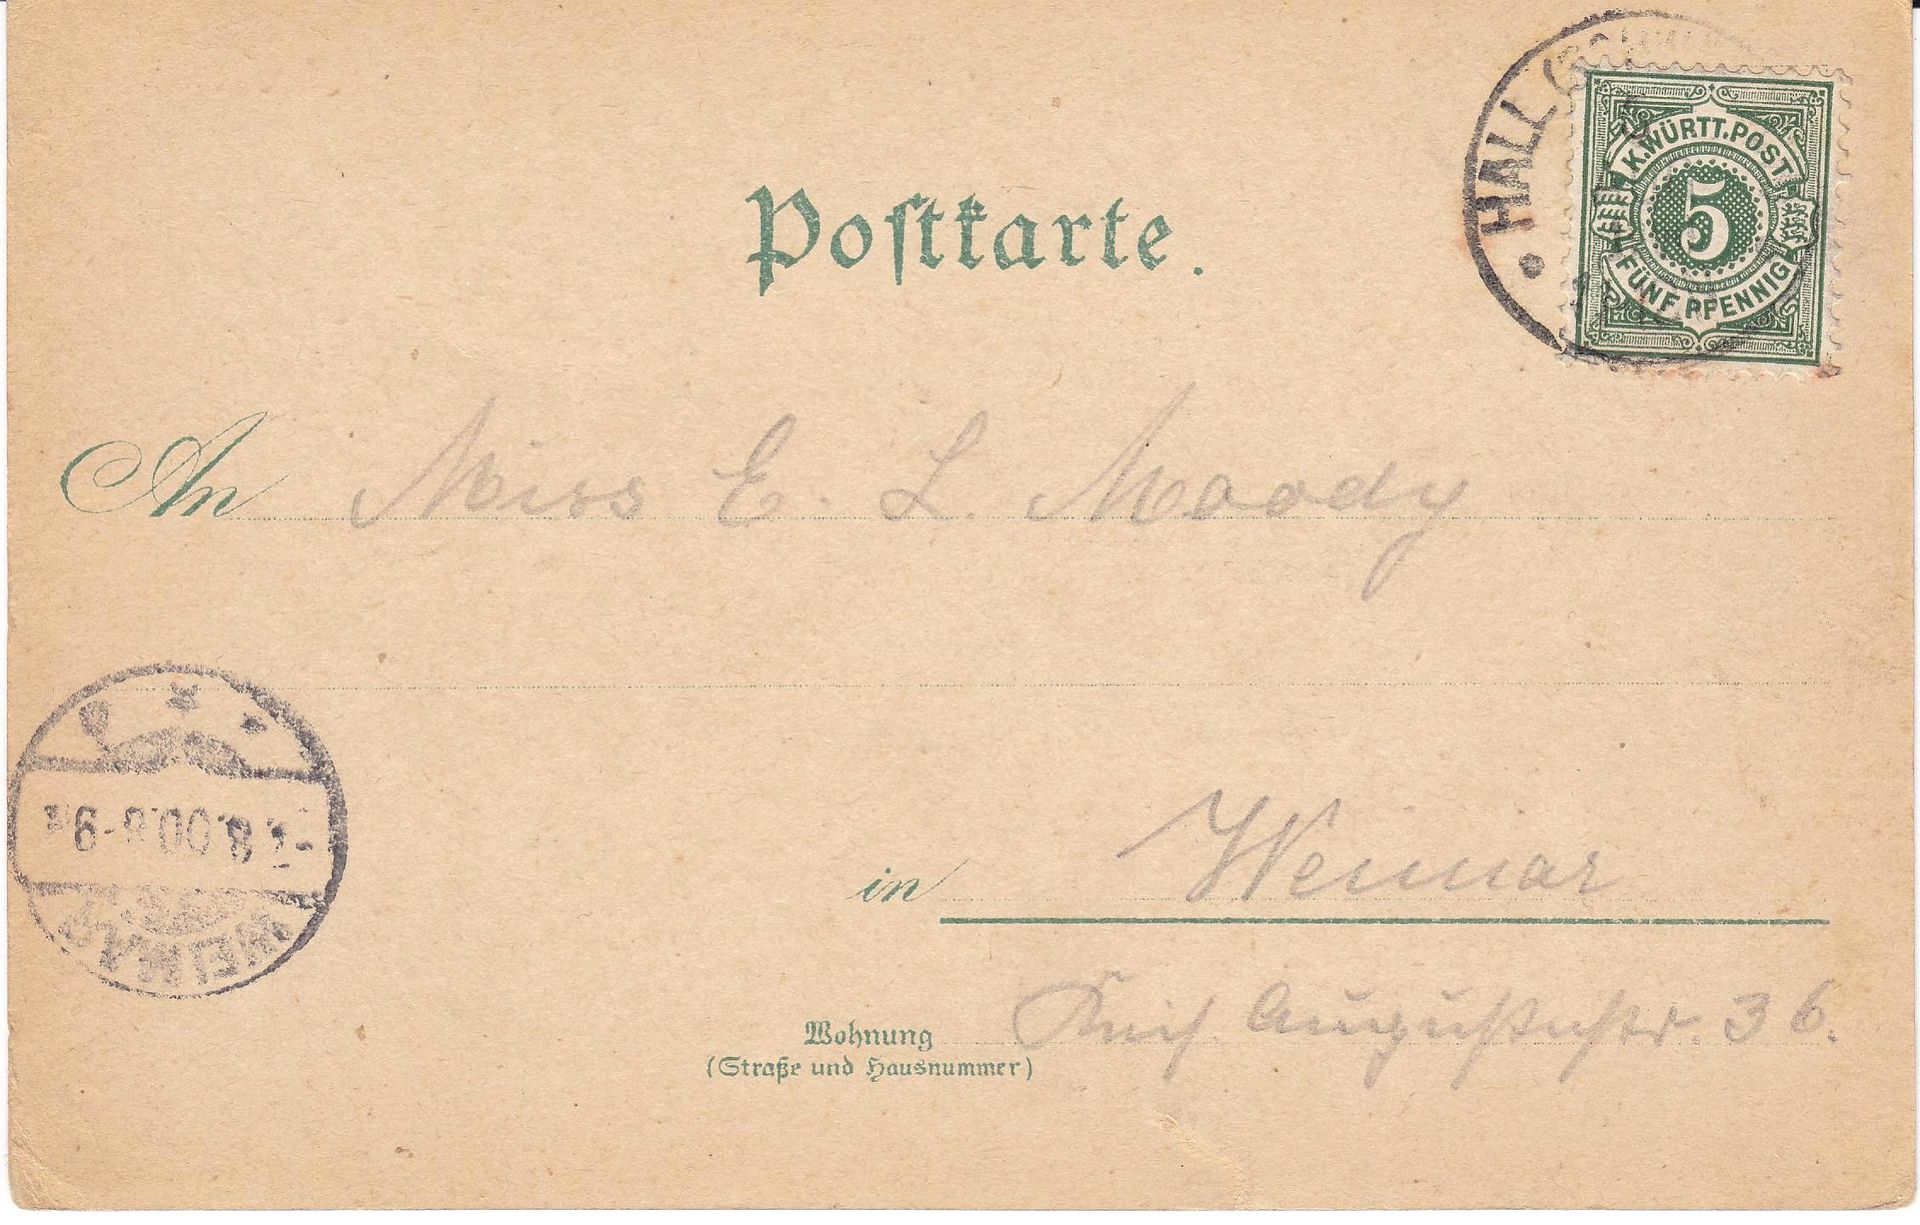 Postkarte.
HALL
K.WÜRTT.POST
5
FÜNF PFENNIG
An Miss E. L. Moody
in Weimar
Wohnung
(Straße und Hausnummer)
Augustastr. 36.
8.00.8-9
WEIMAR